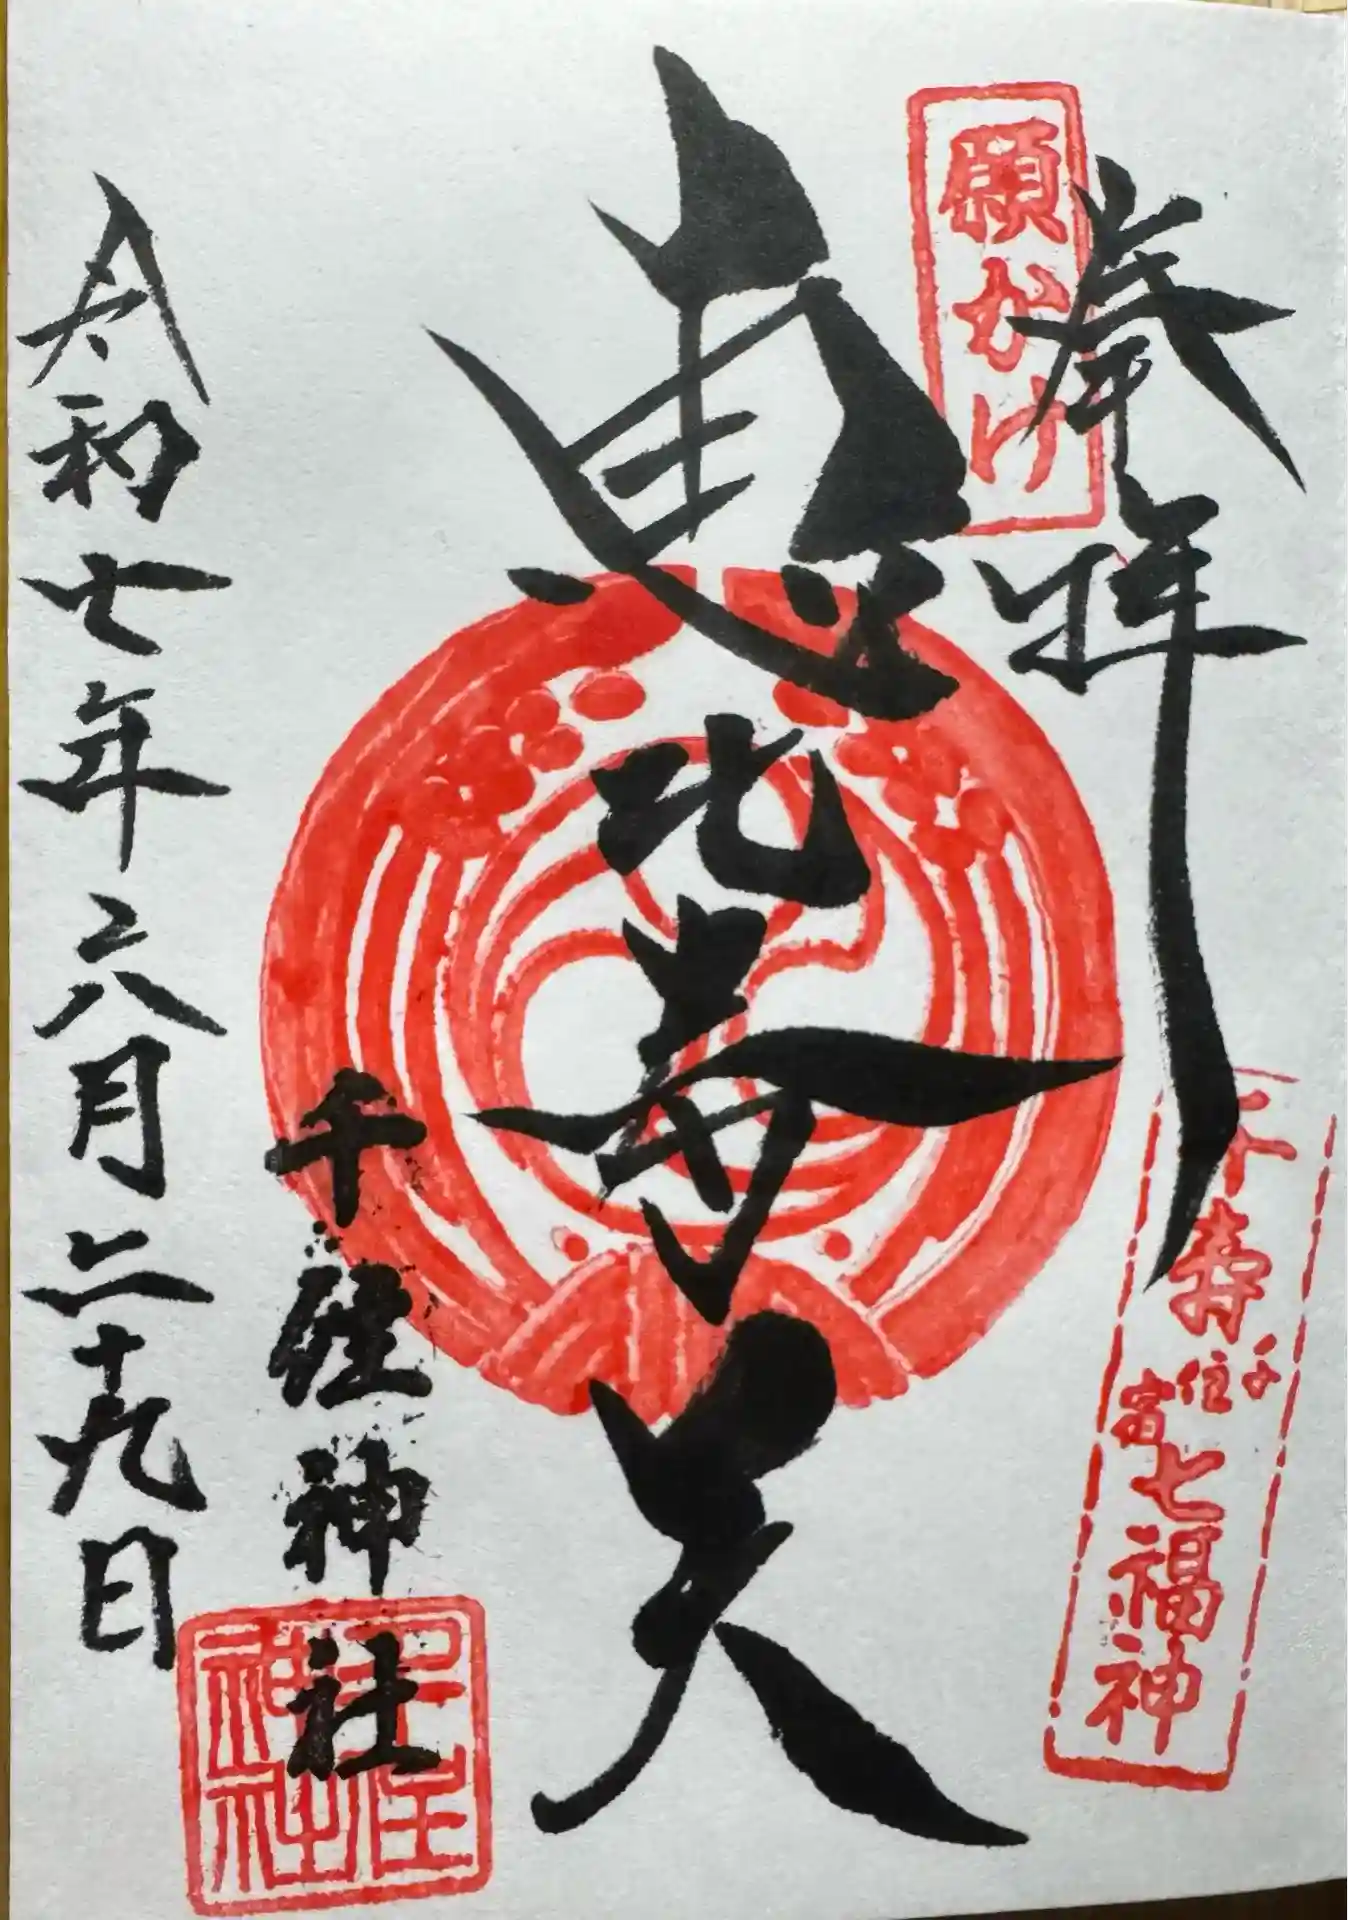 奉拝
願かけ
千寿
千住宿
七福神
恵比寿天
千住神社
千住神社
令和七年六月二十九日